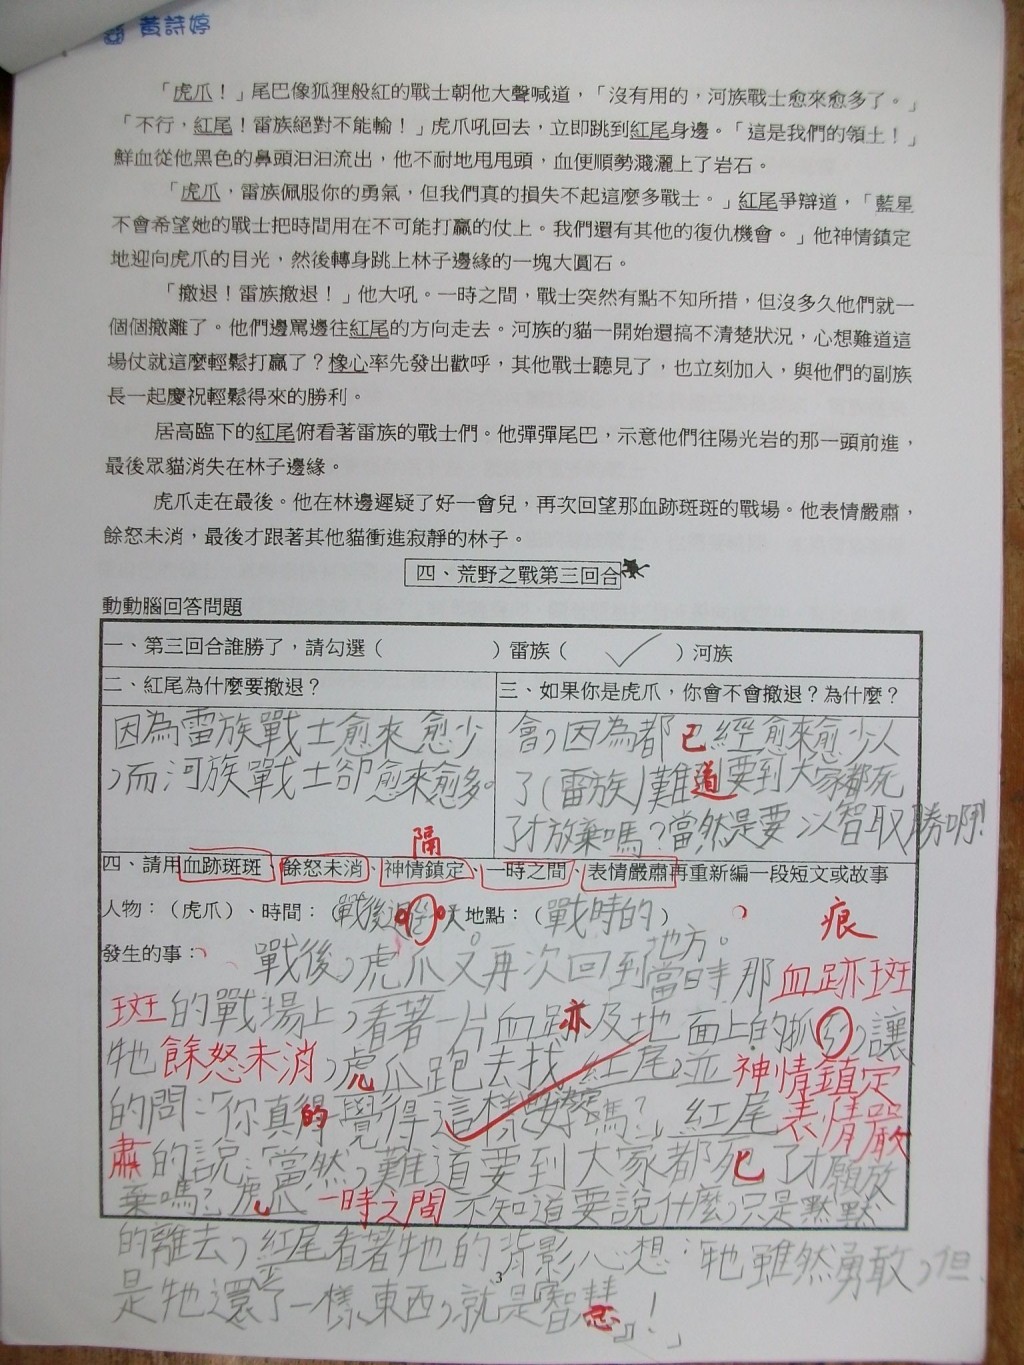 黃詩婷
「虎爪！」尾巴像狐狸般紅的戰士朝他大聲喊道，「沒有用的，河族戰士愈來愈多了。」
「不行，紅尾！雷族絕對不能輸！」虎爪吼回去，立即跳到紅尾身邊。「這是我們的領土！」
鮮血從他黑色的鼻頭汩汩流出，他不耐地甩甩頭，血便順勢濺灑上了岩石。
「虎爪，雷族佩服你的勇氣，但我們真的損失不起這麼多戰士。」紅尾爭辯道，「藍星
不會希望她的戰士把時間用在不可能打贏的仗上。我們還有其他的復仇機會。」他神情鎮定
地迎向虎爪的目光，然後轉身跳上林子邊緣的一塊大圓石。
「撤退！雷族撤退！」他大吼。一時之間，戰士突然有點不知所措，但沒多久他們就一
個個撤離了。他們邊罵邊往紅尾的方向走去。河族的貓一開始還搞不清楚狀況，心想難道這
場仗就這麼輕鬆打贏了？橡心率先發出歡呼，其他戰士聽見了，也立刻加入，與他們的副族
長一起慶祝輕鬆得來的勝利。
居高臨下的紅尾俯看著雷族的戰士們。他彈彈尾巴，示意他們往陽光岩的那一頭前進，
最後眾貓消失在林子邊緣。
虎爪走在最後。他在林邊遲疑了好一會兒，再次回望那血跡斑斑的戰場。他表情嚴肅，
餘怒未消，最後才跟著其他貓衝進寂靜的林子。
四、荒野之戰第三回合
動動腦回答問題
一、第三回合誰勝了，請勾選（ ）雷族（ ✓ ）河族
二、紅尾為什麼要撤退？
三、如果你是虎爪，你會不會撤退？為什麼？
因為雷族戰士愈來愈少
，而河族戰士卻愈來愈多。
會，因為都已經愈來愈少人
了(雷族)難道要到大家都死
了才放棄嗎？當然是要以智取勝啊!
隔
四、請用血跡斑斑、餘怒未消、神情鎮定、一時之間、表情嚴肅再重新編一段短文或故事
人物：（虎爪）、時間：（戰後 天 地點：（戰時的）
地方。
痕
發生的事： 戰後，虎爪又再次回到當時那血跡斑
斑的戰場上，看著一片血跡及地面上的抓 ，讓
牠餘怒未消，虎爪跑去找紅尾，並神情鎮定
的問：「你真的覺得這樣好嗎？」紅尾表情嚴
肅的說：當然，難道要到大家都死了才願放
棄嗎？虎爪一時之間不知道要說什麼，只是默默
的離去，紅尾看著牠的背影心想：「牠雖然勇敢，但
3
是牠還 了一樣東西，就是智慧』!」